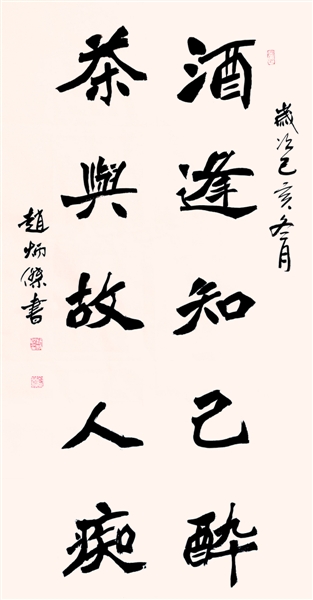 歲次己亥冬月
酒逢知己醉
茶與故人痴
趙炳傑書